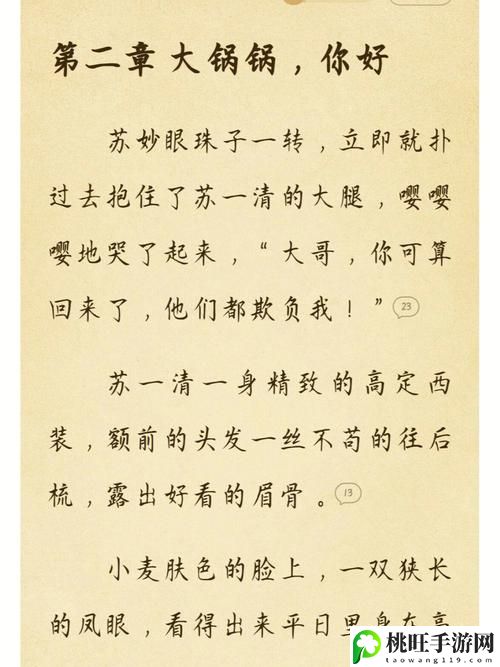 第二章 大锅锅，你好
苏妙眼珠子一转，立即就扑
过去抱住了苏一清的大腿，嘤嘤
嘤地哭了起来，“大哥，你可算
回来了，他们都欺负我！” 23
苏一清一身精致的高定西
装，额前的头发一丝不苟的往后
梳，露出好看的眉骨。 13
小麦肤色的脸上，一双狭长
的凤眼，看得出来平日里身在高
桃旺手游网
taowang119.com